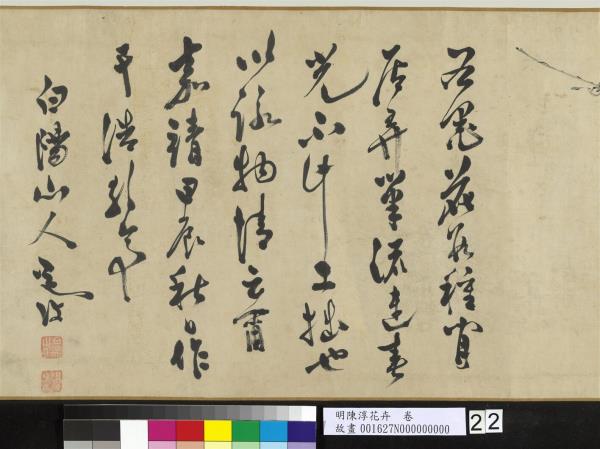 右墨花數種閒
居弄筆流連春
光不計工拙也
以詠物情云爾
嘉靖甲辰秋日作
于浩歌亭
白陽山人道復
明陳淳花卉 卷
故畫 001627N000000000
22